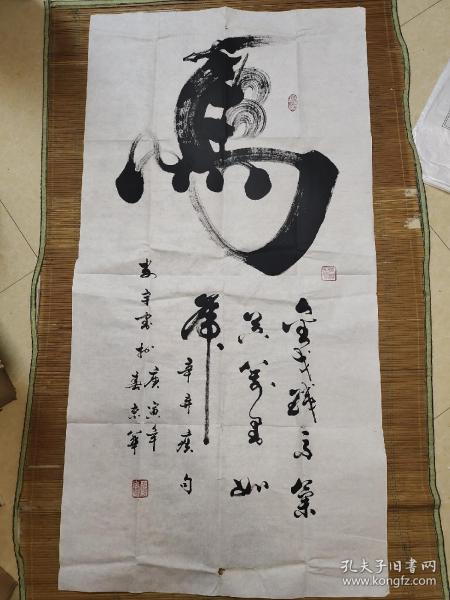 馬
金戈鐵馬氣
吞萬里如
虎 辛弃疾句
庚寅年
宇書於春京華
孔夫子旧书网
www.kongfz.com